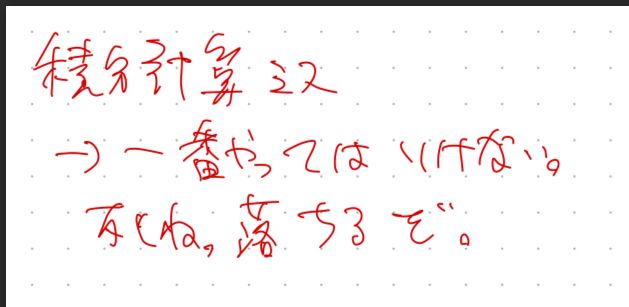 積分計算ミス
→一番やってはいけない。
死ね。落ちるぞ。